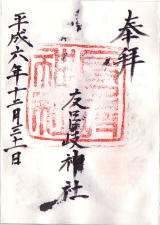 奉拝
友呂岐神社
平成六年十二月三十一日